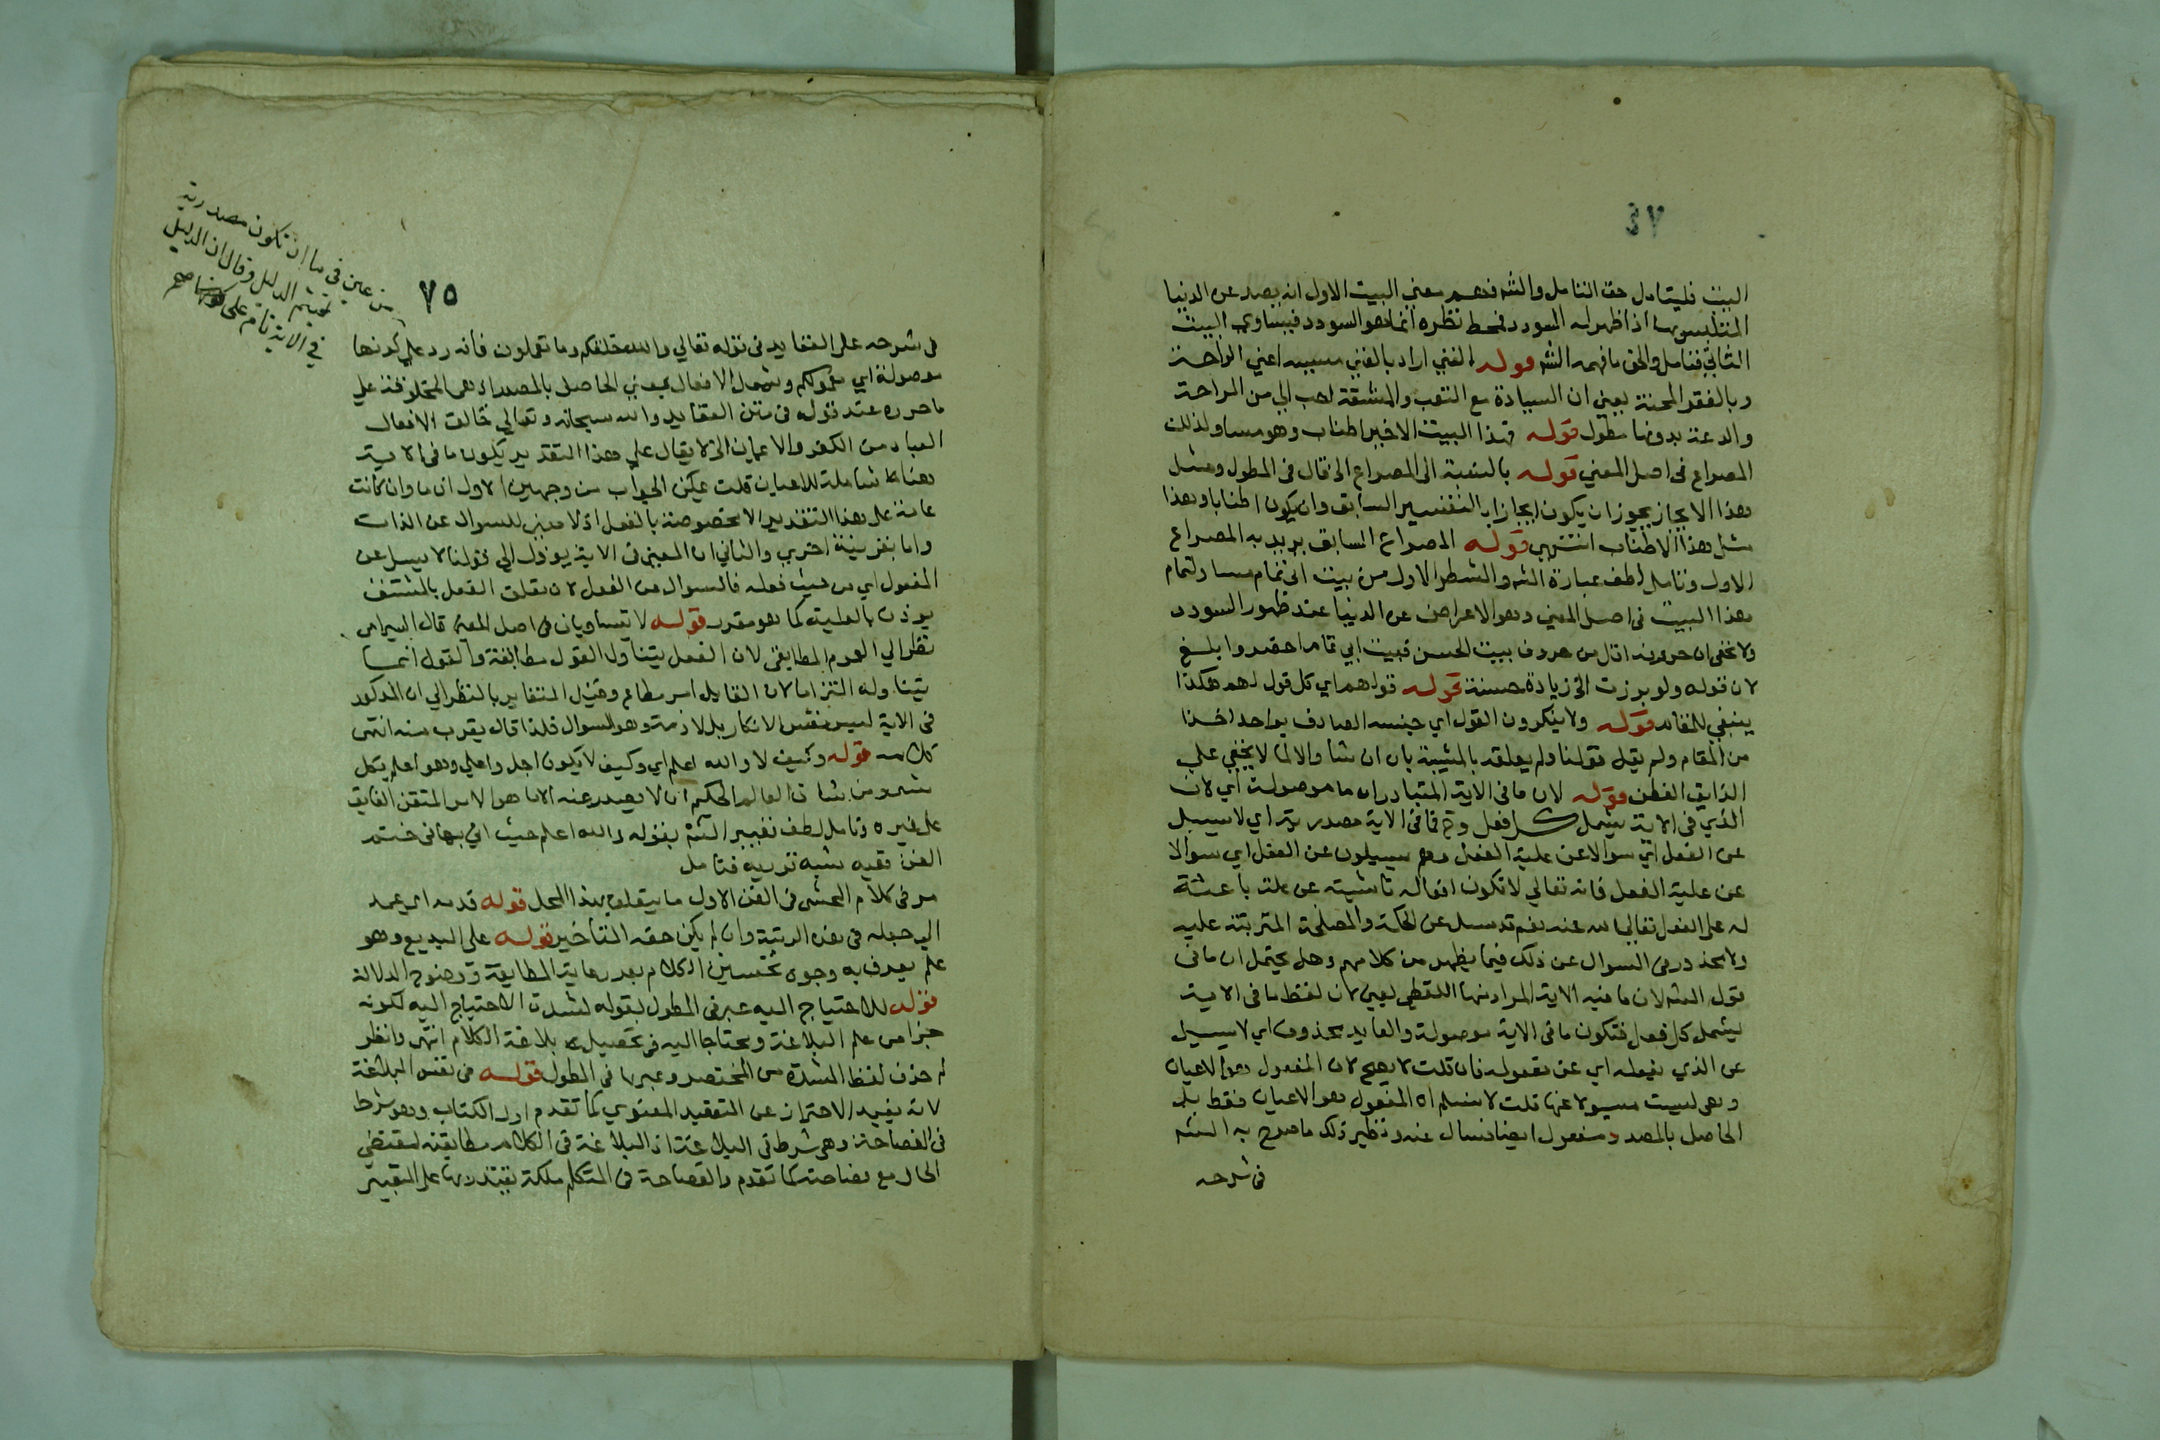 ٧٤
البيت فليتامل حق التامل والشه فهم معني البيت الاول انه يصد عن الدنيا
المتلبس بها اذا ظهر له السودد فحط نظره انما هو السودد فيساوي البيت
الثاني فتامل والحق ما فهمه الشه قوله الغني اراد بالغني مسببه اعني الراحة
وبالفقر المحنة يعني ان السيادة مع التعب والمشقة احب الي من الراحة
والدعة بدونها مطول قوله فهذا البيت الاخير اطناب وهو مساو لذلك
المصراع في اصل المعني قوله بالنسبة الى المصراع الخ قال في المطول ومثل
هذا الايجاز يجوز ان يكون ايجازا بالتفسير السابق وان يكون اطنابا وهذا
مثل هذا الاطناب انتهي قوله المصراع السابق يريد به المصراع
الاول وتامل لطف عبارة الشه والشطر الاول من بيت ابي تمام مساو لتمام
هذا البيت في اصل المعني وهو الاعراض عن الدنيا عند ظهور السودد
ولا يخفى ان حروفه اقل من حروف بيت الحسن فبيت ابي تمام اخصر وابلغ
لان قوله ولو برزت الخ زيادة حسنة قوله قولهم اي كل قول لهم هكذا
ينبغي للمقام قوله ولا ينكرون القول اي جنسه الصادف بواحد اخذا
من المقام ولم يقل قولنا ولم يعلقه بالمشيئة بان ان شا والا لما لا يخفي علي
الذايق الفطن قوله لان ما في الاية المتبادر ان ما موصولة اي لان
الذي في الاية يشمل كل فعل وح فما في الاية مصدرية اي لا سيل
عن الفعل اي سوالا عن علية الفعل وهم سيلون عن الفعل اي سوالا
عن علية الفعل فانه تعالي لا تكون افعاله ناشية عن علة باعثة
له على الفعل تعالى الله عنه نعم قد يسل عن الحكمة والمصلحة المترتبة عليه
ولا محذور في السوال عن ذلك فيما يظهر من كلامهم وحل يحتمل ان ما في
قول الشه لان ما فيه الاية المراد منها اللفظي يعني لان لفظ ما في الاية
يشمل كل فعل فتكون ما في الاية موصولة والعايد محذوف اي لا يسيل
عن الذي يفعله اي عن مفعوله فان قلت لا يصح لان المفعول هو الاعيان
وهي ليست مسيولا عنها قلت لا نسلم ان المفعول هو الاعيان فقط بل
الحاصل بالمصدر مفعول ايضا فنسال عنه ونظير ذلك ما صرح به الشه
في شرحه
٧٥
في شرحه على العقايد في قوله تعالي والله خلقكم وما تعملون فانه رد علي كونها
موصولة اي معمولكم ويشمل الافعال بمعني الحاصل بالمصدر اذ هي المخلوقة علي
ما حرره عند قوله في متن العقايد والله سبحانه وتعالي خالق لافعال
العباد من الكفر والايمان الخ لا يقال علي هذا التقدير يكون ما في الاية
هنا شاملة للاعيان قلت يمكن الجواب من وجهين الاول ان ما وان كانت
عامة على هذا التقدير الا مخصوصة بالفعل اذ لا معني للسوال عن الذات
واما بقرينة اخري والثاني ان المعنى في الاية يوول الي قولنا لا يسل عن
المفعول اي من حيث فعله فالسوال عن الفعل لان تعلق الفعل بالمشتق
يوذن بالعلية كما هو مقرر قوله لا تساويان في اصل المعنى قال السيرامي
نظرا الي المفهوم المطابقي لان الفعل يتناول القول مطابقة والقول انما
يتناوله التزاما لان القايل اسر مطاع وقيل التغاير بالنظر الي ان المذكور
في الاية ليس نفس الانكار بل لازمة وهو السوال فلذا قال يقرب منه انتهى
كلامه قوله وكيف لا والله اعلم اي وكيف لا يكون اجل واعلي وهو اعلم بكل
شي ومن شان العالم الحكيم ان لا يصدر عنه الا ما هو الامر المتقن الفايق
على غيره وتامل لطف تعبير الشه بقوله والله اعلم حيث اتي بها في ختم
الفن ففيه شبه تورية فتامل
مر في كلام المحشي في الفن الاول ما يتعلق بهذا المحل قوله قدمه اي عمد
الي جعله في هذه الرتبة وان لم يكن حقه التاخير قوله على البديع وهو
علم يعرف به وجوه تحسين الكلام بعد رعاية المطابقة ووضوح الدلالة
قوله للاحتياج اليه عبر في المطول بقوله لشدة الاحتياج اليه لكونه
جزا من علم البلاغة ومحتاجا اليه في تحصيل بلاغة الكلام انتهى وانظر
لم حذف لفظ الشدة من المختصر وعبر بها في المطول قوله في نفس البلاغة
لانه يفيد الاحتراز عن التعقيد المعنوي كما تقدم اول الكتاب وهو شرط
في الفصاحة وهي شرط في البلاغة اذ البلاغة في الكلام مطابقته لمقتضي
الحال مع فصاحته كما تقدم والفصاحة في المتكلم ملكة يقتدر بها على التعبير
من عين في ما ان تكون مصدرية
تتميم الدليل وقال ان الدليل
في الاية تام على كونها صح